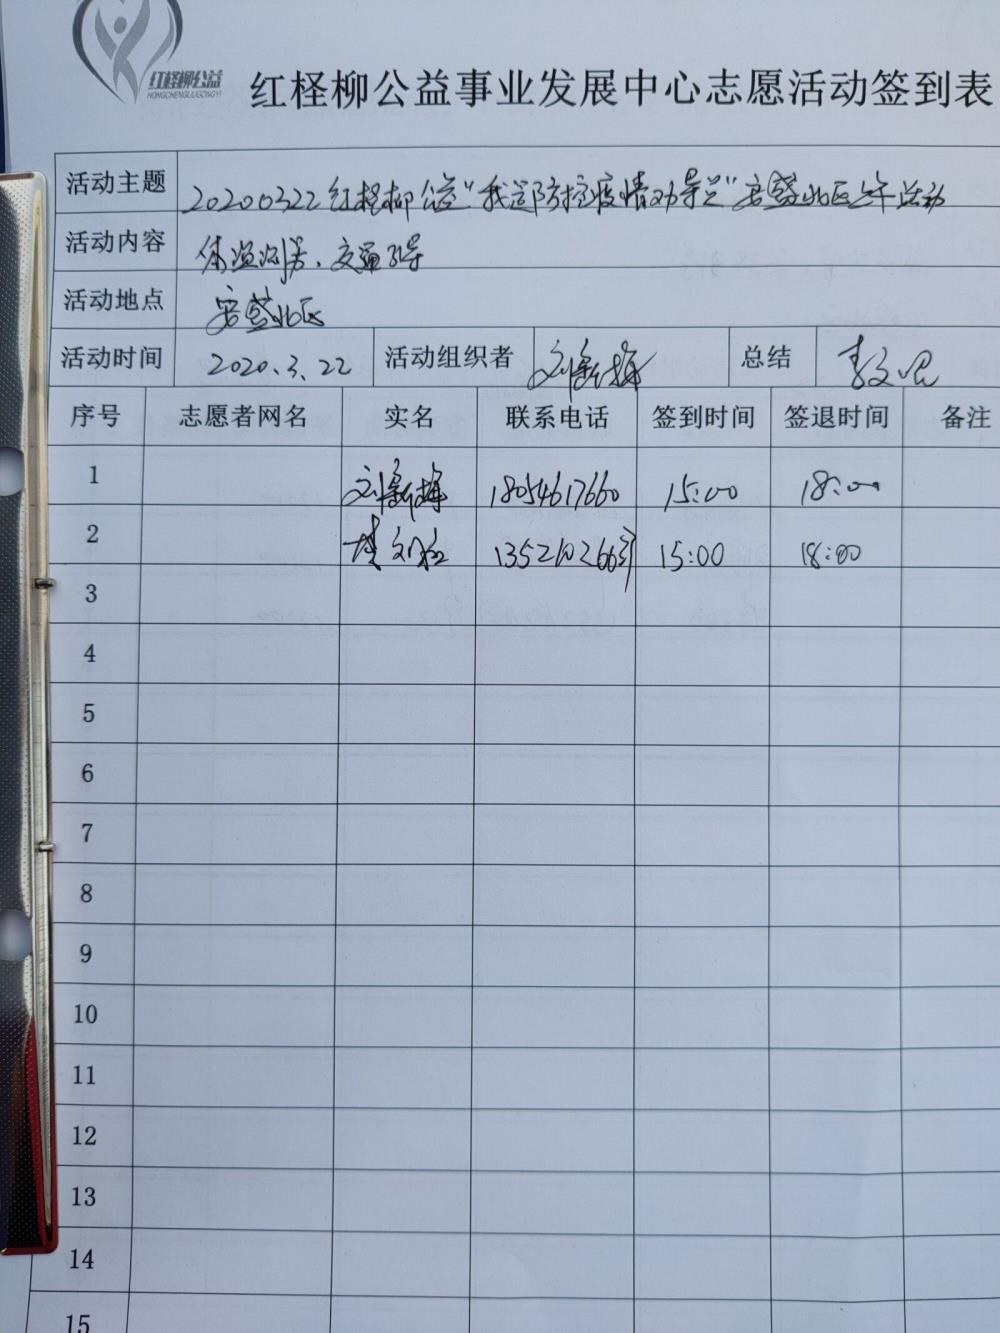 红柽柳公益
HONGCHENGLIUGONGYI
红柽柳公益事业发展中心志愿活动签到表
活动主题 20200322红柽柳公益"我为防控疫情"安盛北区 活动
活动内容 体温测量、交通引导
活动地点 安盛北区
活动时间 2020.3.22 活动组织者 刘新梅 总结
序号 志愿者网名 实名 联系电话 签到时间 签退时间 备注
1 刘新梅 18054617660 15:00 18:00
2 15:00 18:00
3
4
5
6
7
8
9
10
11
12
13
14
15